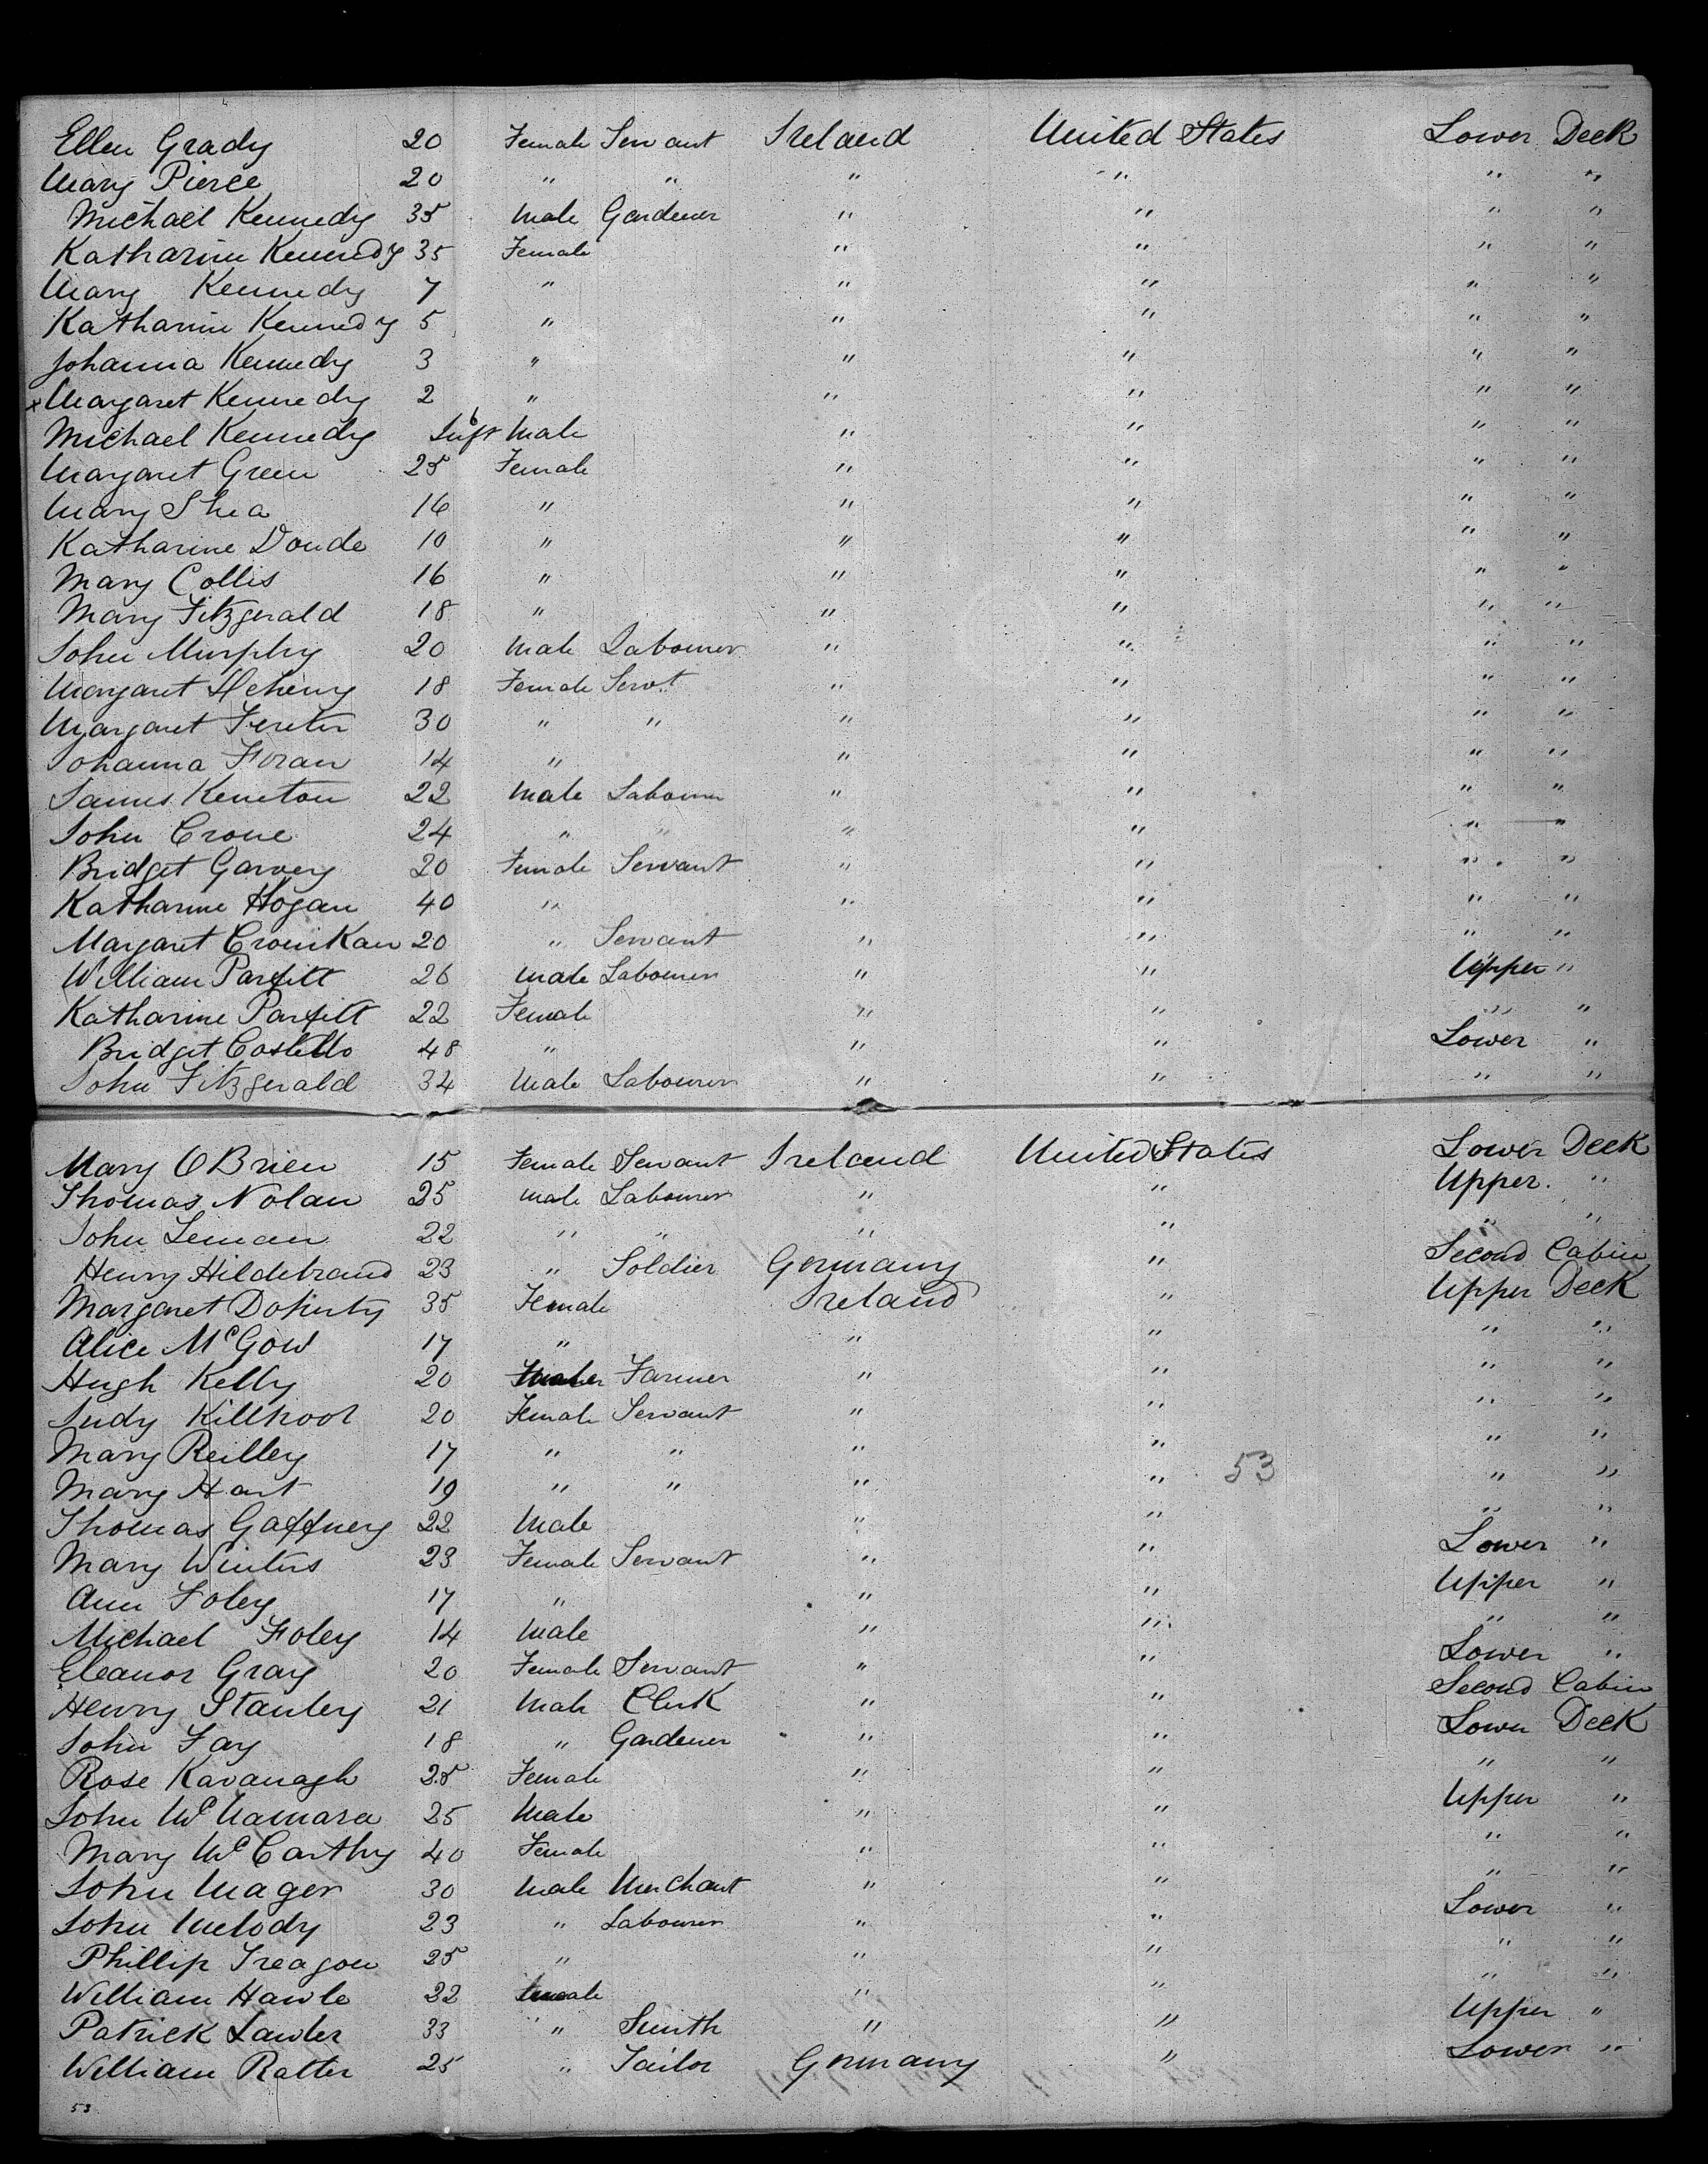 Ellen Grady 20 Female Servant Ireland United States Lower Deck
Mary Pierce 20 " " " " " "
Michael Kennedy 35 Male Gardener " " " "
Katharine Kennedy 35 Female " " " "
Mary Kennedy 7 " " " " "
Katharine Kennedy 5 " " " " "
Johanna Kennedy 3 " " " " "
x Margaret Kennedy 2 " " " " "
Michael Kennedy Inft 6 Male " " " "
Margaret Green 25 Female " " " "
Mary Shea 16 " " " " "
Katharine Doude 10 " " " " "
Mary Collis 16 " " " " "
Mary Fitzgerald 18 " " " " "
John Murphy 20 Male Labourer " " " "
Margaret Heheny 18 Female Servt " " " "
Margaret Feriter 30 " " " " " "
Johanna Foran 14 " " " " "
James Keneton 22 Male Labourer " " " "
John Crone 24 " " " " " "
Bridget Garvey 20 Female Servant " " " "
Katharine Hogan 40 " " " " "
Margaret Cronikan 20 " Servant " " " "
William Parfitt 26 Male Labourer " " Upper "
Katharine Parfitt 22 Female " " " "
Bridget Costello 48 " " " Lower "
John Fitzgerald 34 Male Labourer " " " "
Mary O Brien 15 Female Servant Ireland United States Lower Deck
Thomas Nolan 25 Male Labourer " " Upper "
John Leman 22 " " " " " "
Henry Hildebrand 23 " Soldier Germany " Second Cabin
Margaret Doherty 35 Female Ireland " Upper Deck
Alice McGow 17 " " " " "
Hugh Kelly 20 Male Farmer " " " "
Judy Killkool 20 Female Servant " " " "
Mary Reilley 17 " " " " " "
Mary Hart 19 " " " " 53 " "
Thomas Gaffney 22 Male " " " "
Mary Winters 23 Female Servant " " Lower "
Ann Foley 17 " " " Upper "
Michael Foley 14 Male " " " "
Eleanor Gray 20 Female Servant " " Lower "
Henry Stanley 21 Male Clerk " " Second Cabin
John Fay 18 " Gardener " " Lower Deck
Rose Kavanagh 25 Female " " " "
John McNamara 25 Male " " Upper "
Mary McCarthy 40 Female " " " "
John Mager 30 Male Merchant " " " "
John Melody 23 " Labourer " " Lower "
Phillip Treagou 25 " " " " "
William Hawle 22 male " " " "
Patrick Lawler 33 " Smith " " Upper "
William Ratter 25 " Tailor Germany " Lower "
53